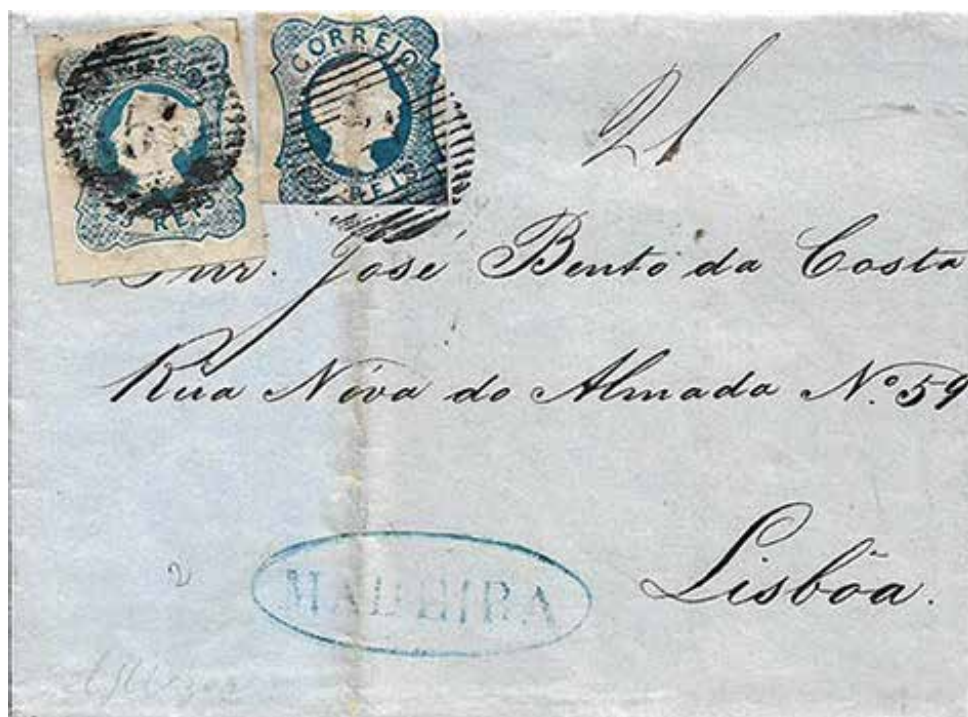 CORREIO
REIS
REIS
Snr. José Bento da Costa
Rua Nova do Almada N.º 59
Lisbôa.
2
MADEIRA